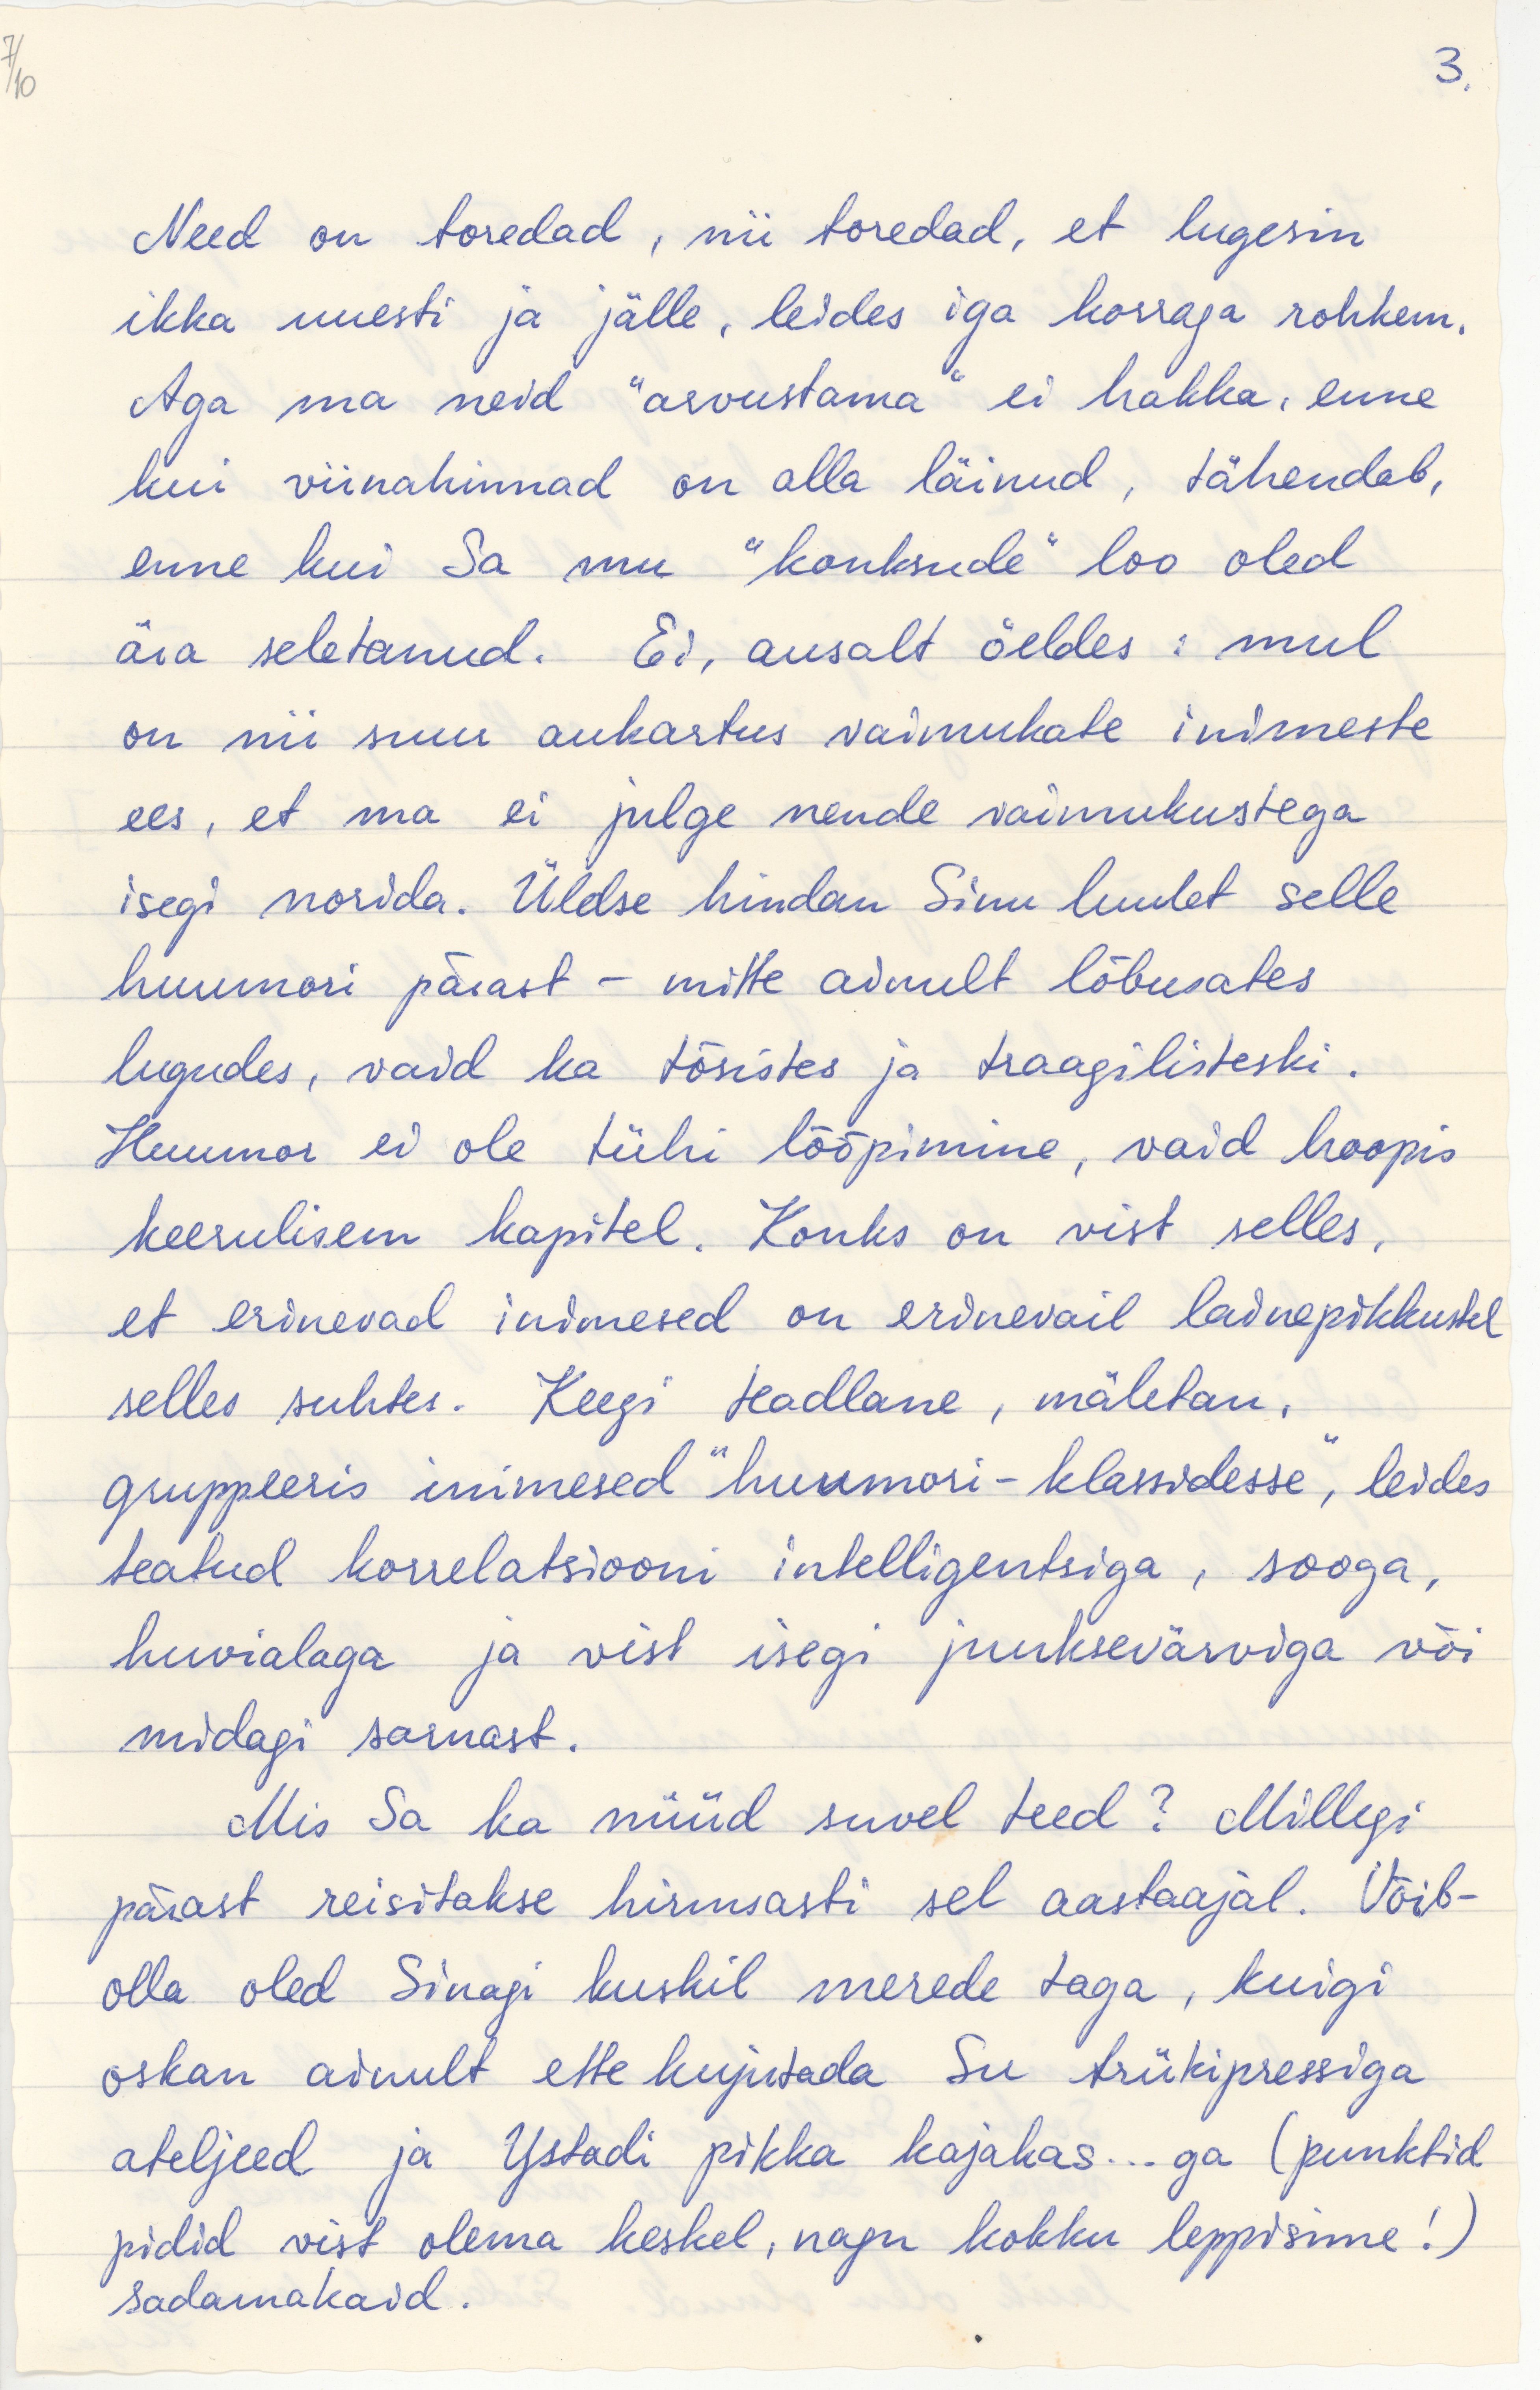 7/10
3.
Need on toredad, nii toredad, et lugesin
ikka uuesti ja jälle, leides iga korraga rohkem.
Aga ma neid "arvustama" ei hakka, enne
kui viinahinnad on alla läinud, tähendab,
enne kui Sa mu "konksude" loo oled
ära seletanud. Ei, ausalt öeldes : mul
on nii suur aukartus vaimukate inimeste
ees, et ma ei julge nende vaimukustega
isegi norida. Üldse hindan Sinu luulet selle
huumori pärast - mitte ainult lõbusates
lugudes, vaid ka tõsistes ja traagilisteski.
Huumor ei ole tühi lööpimine, vaid hoopis
keerulisem kapitel. Konks on vist selles,
et erinevad inimesed on erinevail lainepikkustel
selles suhtes. Keegi teadlane, mäletan,
gruppeeris inimesed "huumori-klassidesse", leides
teatud korrelatsiooni intelligentsiga, sooga,
huvialaga ja vist isegi juuksevärviga või
midagi sarnast.
Mis Sa ka nüüd suvel teed? Millegi
pärast reisitakse hirmsasti sel aastaajal. Võib-
olla oled Sinagi kuskil merede taga, kuigi
oskan ainult ette kujutada Su trükipressiga
ateljeed ja Ystadi pikka kajakas...ga (punktid
pidid vist olema keskel, nagu kokku leppisime!)
sadamakaid.